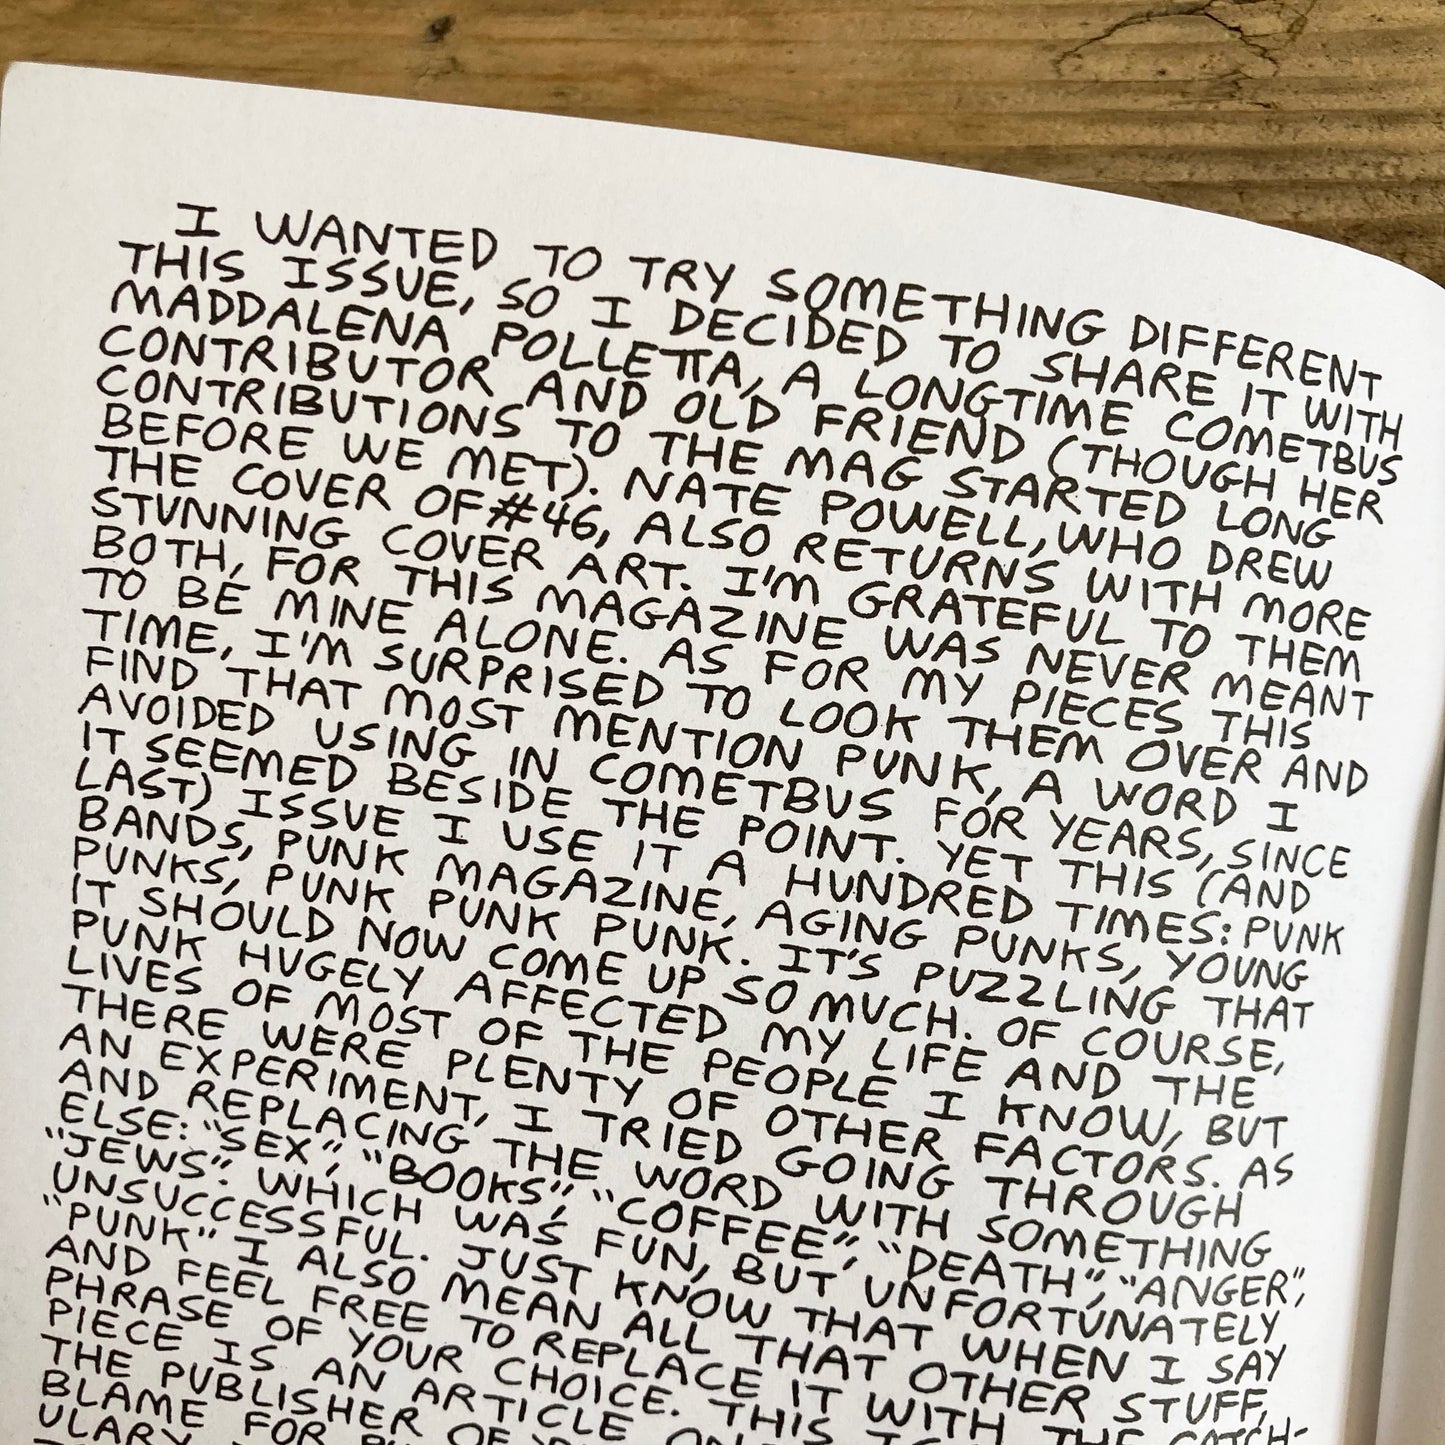 I WANTED TO TRY SOMETHING DIFFERENT
THIS ISSUE, SO I DECIDED TO SHARE IT WITH
MADDALENA POLLETTA, A LONGTIME COMETBUS
CONTRIBUTOR AND OLD FRIEND (THOUGH HER
CONTRIBUTIONS TO THE MAG STARTED LONG
BEFORE WE MET). NATE POWELL, WHO DREW
THE COVER OF #46, ALSO RETURNS WITH MORE
STUNNING COVER ART. I'M GRATEFUL TO THEM
BOTH, FOR THIS MAGAZINE WAS NEVER MEANT
TO BE MINE ALONE. AS FOR MY PIECES THIS
TIME, I'M SURPRISED TO LOOK THEM OVER AND
FIND THAT MOST MENTION PUNK, A WORD I
AVOIDED USING IN COMETBUS FOR YEARS, SINCE
IT SEEMED BESIDE THE POINT. YET THIS (AND
LAST) ISSUE I USE IT A HUNDRED TIMES: PUNK
BANDS, PUNK MAGAZINE, AGING PUNKS, YOUNG
PUNKS, PUNK PUNK PUNK. IT'S PUZZLING THAT
IT SHOULD NOW COME UP SO MUCH. OF COURSE,
PUNK HUGELY AFFECTED MY LIFE AND THE
LIVES OF MOST OF THE PEOPLE I KNOW, BUT
THERE WERE PLENTY OF OTHER FACTORS. AS
AN EXPERIMENT, I TRIED GOING THROUGH
AND REPLACING THE WORD WITH SOMETHING
ELSE: "SEX", "BOOKS", "COFFEE", "DEATH", "ANGER",
"JEWS". WHICH WAS FUN, BUT UNFORTUNATELY
UNSUCCESSFUL. JUST KNOW THAT WHEN I SAY
"PUNK" I ALSO MEAN ALL THAT OTHER STUFF,
AND FEEL FREE TO REPLACE IT WITH THE CATCH-
PHRASE OF YOUR CHOICE. THIS
PIECE IS AN ARTICLE
THE PUBLISHER OF
BLAME FOR
ULARY